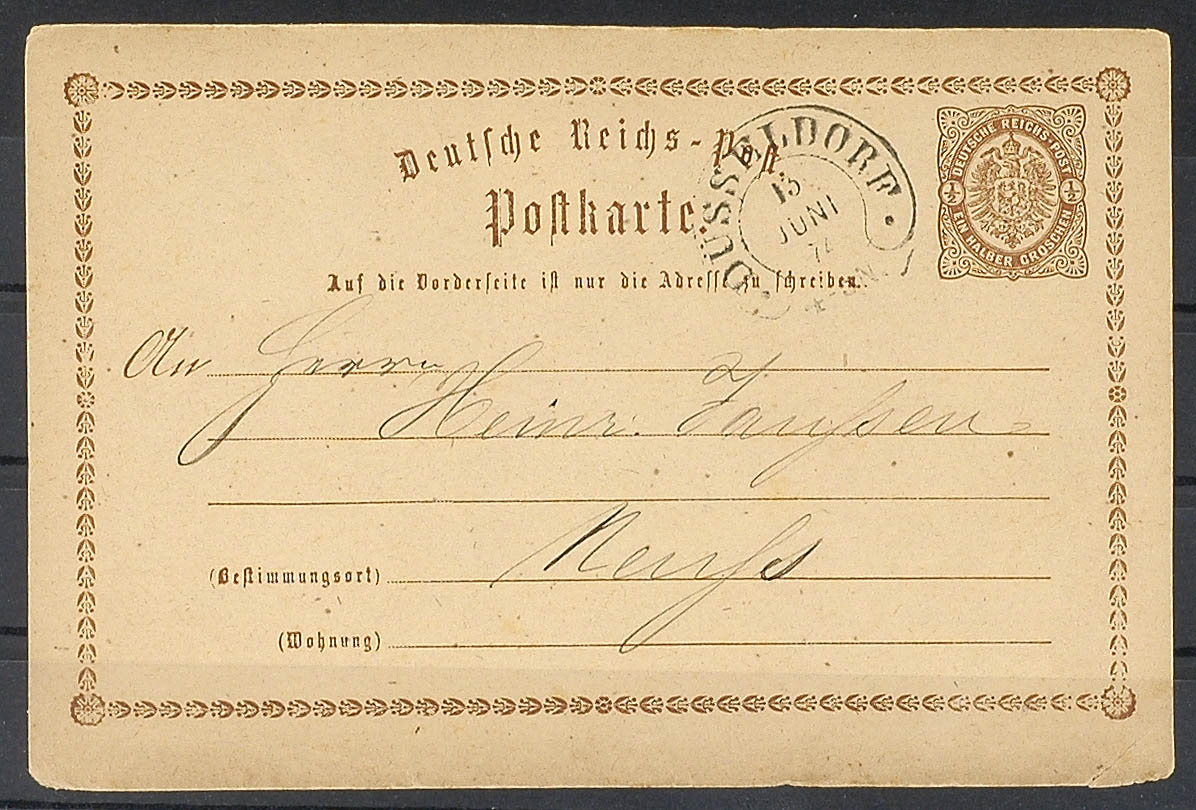 Deutsche Reichs-Post
Postkarte.
Auf die Vorderseite ist nur die Adresse zu schreiben.
DÜSSELDORF
13
JUNI
74
DEUTSCHE REICHS-POST
½ ½
EIN HALBER GROSCHEN
An Herrn
Heinr. Janssen
(Bestimmungsort) Neuss
(Wohnung)